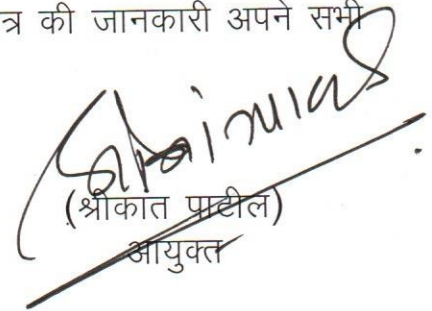 त्र की जानकारी अपने सभी
(श्रीकांत पाटील)
आयुक्त